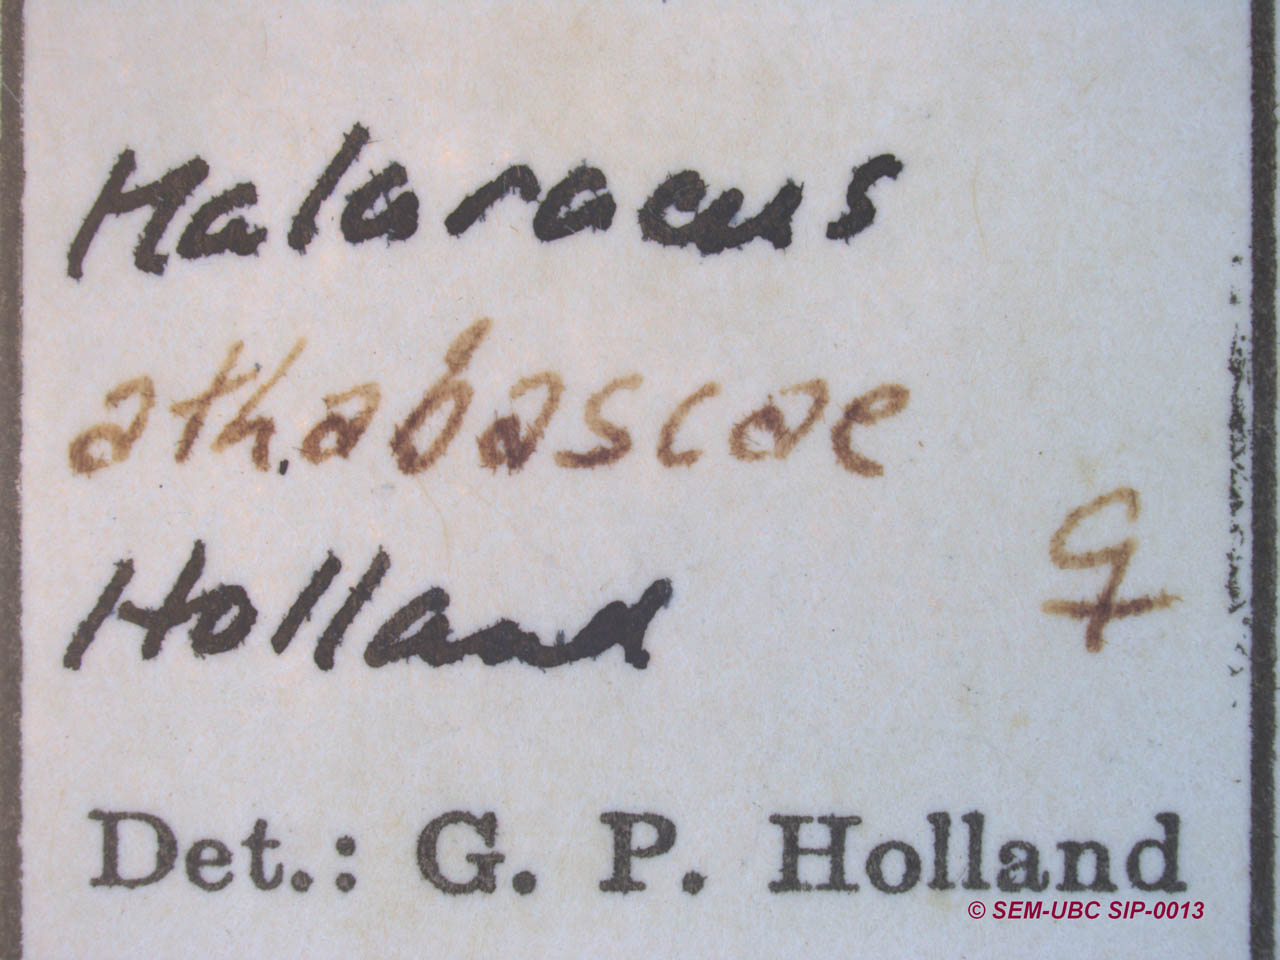 Malaraeus
athabascae
Holland
♀
Det.: G. P. Holland
© SEM-UBC SIP-0013